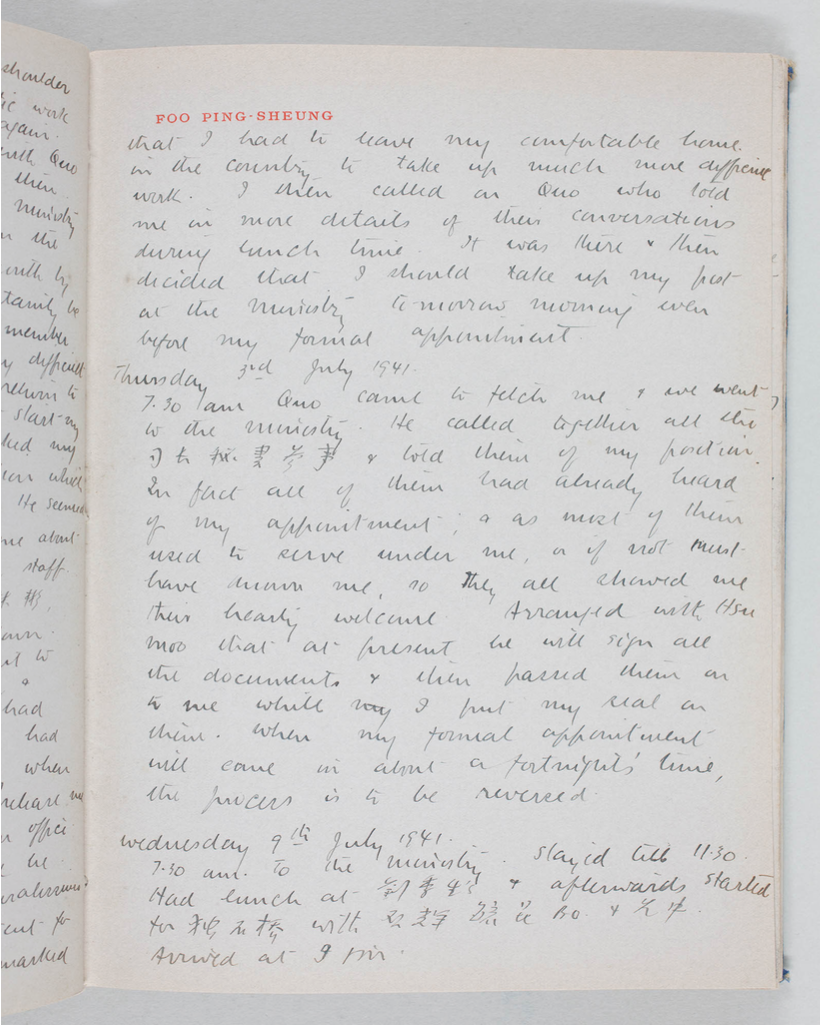 shoulder
work
again.
with Quo
then
ministry
the
with by
be
member
difficult
return to
start my
my
which
He seemed
about
staff.
to
had
had
when
release me
office
be
to
marked
FOO PING-SHEUNG
that I had to leave my comfortable home
in the country to take up much more difficult
work. I then called on Quo who told
me in more details of their conversations
during lunch time. It was there & then
decided that I should take up my post
at the ministry tomorrow morning even
before my formal appointment.
Thursday 3rd July 1941.
7.30 am Quo came to fetch me & we went
to the ministry. He called together all the
& told them of my position.
In fact all of them had already heard
of my appointment; & as most of them
used to serve under me, or if not must
have known me, so they all showed me
their hearty welcome. Arranged with Hsu
moo that at present he will sign all
the documents & then passed them on
to me while my I put my seal on
them. When my formal appointment
will come in about a fortnight's time,
the process is to be reversed.
Wednesday 9th July 1941.
7.30 am. To the ministry. Stayed till 11.30.
Had lunch at & afterwards started
for with &
Arrived at